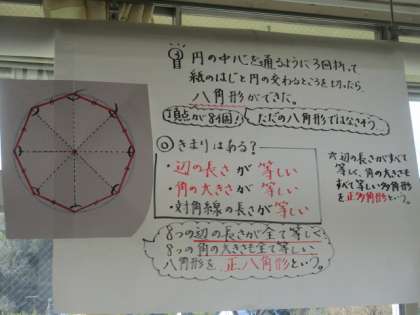 ③
目
円の中心を通るように3回折って
紙のはじと円の交わるところを切ったら
八角形ができた。
頂点が8個!
ただの八角形ではなさそう
◎きまりはある?
・辺の長さが等しい
・角の大きさが等しい
・対角線の長さが等しい
8つの辺の長さが全て等しく
8つの角の大きさも全て等しい
八角形を正八角形という。
辺の長さがすべて
等しく、角の大きさも
すべて等しい多角形
を正多角形という。